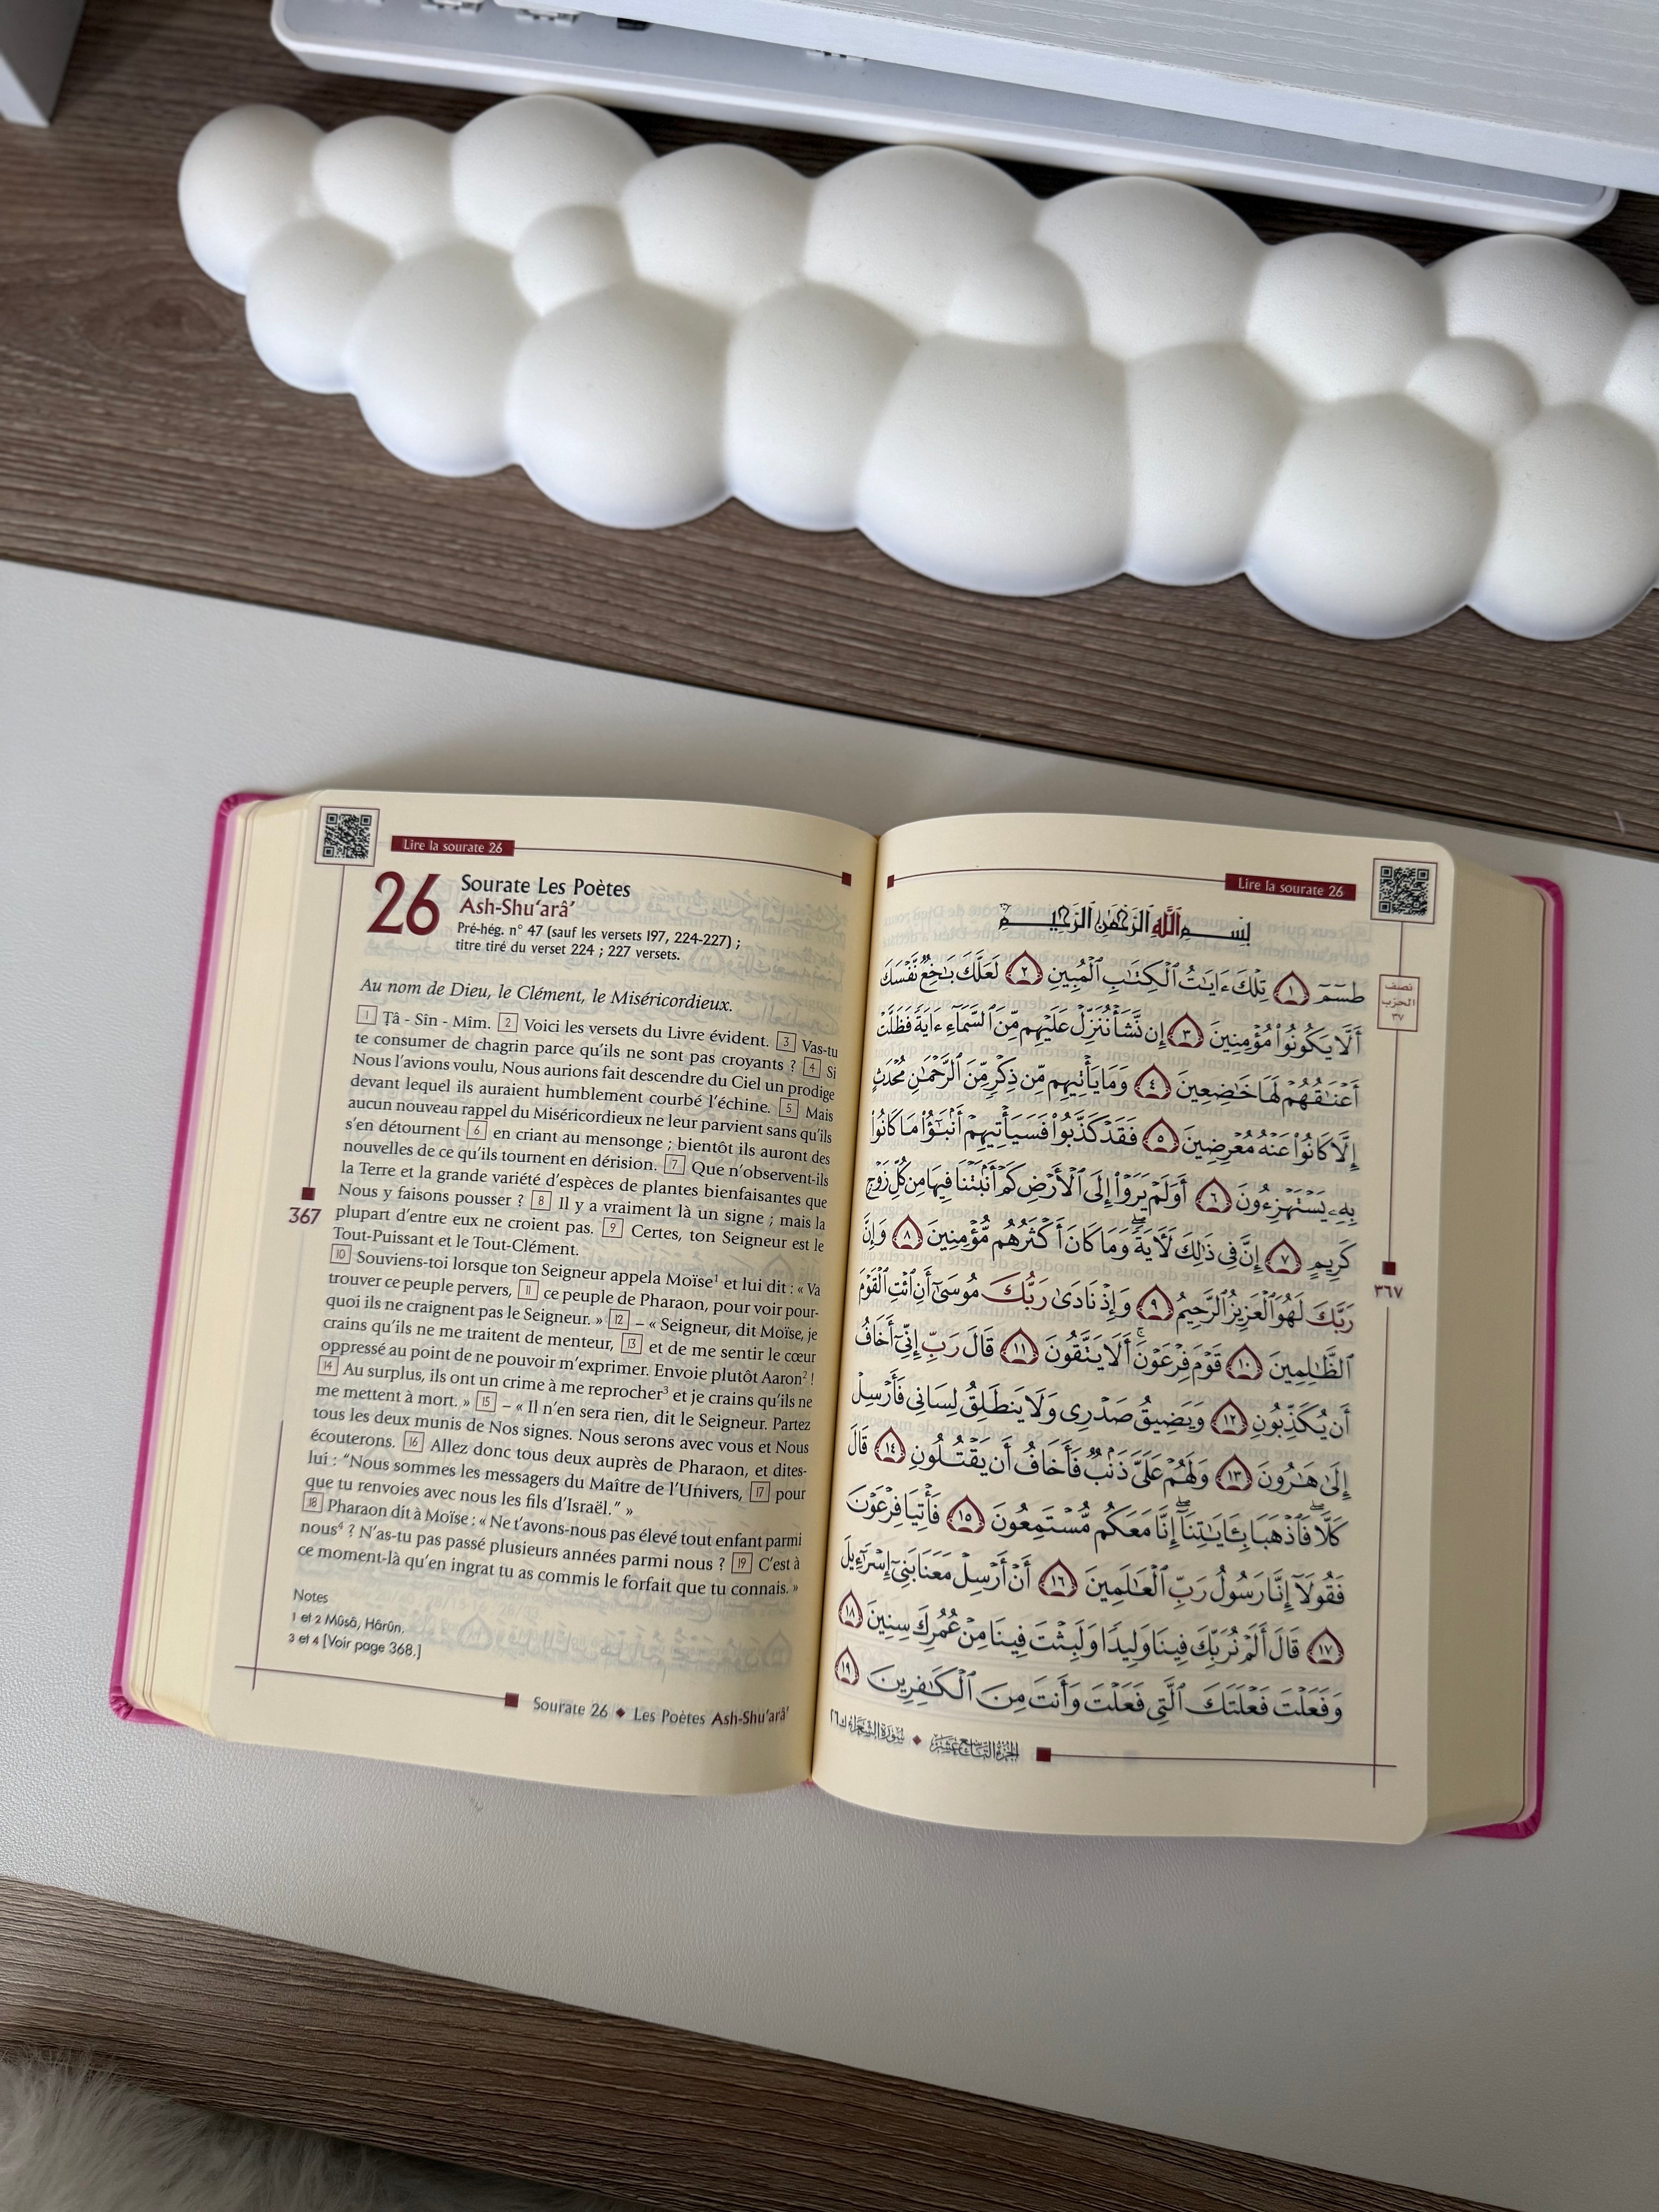 Lire la sourate 26
26
Sourate Les Poètes
Ash-Shu‘arâ’
Pré-hég. n° 47 (sauf les versets 197, 224-227) ;
titre tiré du verset 224 ; 227 versets.
Au nom de Dieu, le Clément, le Miséricordieux.
1 Ṭâ - Sîn - Mîm. 2 Voici les versets du Livre évident. 3 Vas-tu
te consumer de chagrin parce qu’ils ne sont pas croyants ? 4 Si
Nous l’avions voulu, Nous aurions fait descendre du Ciel un prodige
devant lequel ils auraient humblement courbé l’échine. 5 Mais
aucun nouveau rappel du Miséricordieux ne leur parvient sans qu’ils
s’en détournent 6 en criant au mensonge ; bientôt ils auront des
nouvelles de ce qu’ils tournent en dérision. 7 Que n’observent-ils
la Terre et la grande variété d’espèces de plantes bienfaisantes que
Nous y faisons pousser ? 8 Il y a vraiment là un signe ; mais la
plupart d’entre eux ne croient pas. 9 Certes, ton Seigneur est le
Tout-Puissant et le Tout-Clément.
10 Souviens-toi lorsque ton Seigneur appela Moïse1 et lui dit : « Va
trouver ce peuple pervers, 11 ce peuple de Pharaon, pour voir pour-
quoi ils ne craignent pas le Seigneur. » 12 – « Seigneur, dit Moïse, je
crains qu’ils ne me traitent de menteur, 13 et de me sentir le cœur
oppressé au point de ne pouvoir m’exprimer. Envoie plutôt Aaron2 !
14 Au surplus, ils ont un crime à me reprocher3 et je crains qu’ils ne
me mettent à mort. » 15 – « Il n’en sera rien, dit le Seigneur. Partez
tous les deux munis de Nos signes. Nous serons avec vous et Nous
écouterons. 16 Allez donc tous deux auprès de Pharaon, et dites-
lui : “Nous sommes les messagers du Maître de l’Univers, 17 pour
que tu renvoies avec nous les fils d’Israël.” »
18 Pharaon dit à Moïse : « Ne t’avons-nous pas élevé tout enfant parmi
nous4 ? N’as-tu pas passé plusieurs années parmi nous ? 19 C’est à
ce moment-là qu’en ingrat tu as commis le forfait que tu connais. »
Notes
1 et 2 Mûsâ, Hârûn.
3 et 4 [Voir page 368.]
367
Sourate 26 ◆ Les Poètes Ash-Shu‘arâ’
Lire la sourate 26
بِسْمِ ٱللَّهِ ٱلرَّحْمَٰنِ ٱلرَّحِيمِ
طسٓمٓ ١ تِلْكَ ءَايَٰتُ ٱلْكِتَٰبِ ٱلْمُبِينِ ٢ لَعَلَّكَ بَٰخِعٌ نَّفْسَكَ
أَلَّا يَكُونُوا۟ مُؤْمِنِينَ ٣ إِن نَّشَأْ نُنَزِّلْ عَلَيْهِم مِّنَ ٱلسَّمَآءِ ءَايَةً فَظَلَّتْ
أَعْنَٰقُهُمْ لَهَا خَٰضِعِينَ ٤ وَمَا يَأْتِيهِم مِّن ذِكْرٍ مِّنَ ٱلرَّحْمَٰنِ مُحْدَثٍ
إِلَّا كَانُوا۟ عَنْهُ مُعْرِضِينَ ٥ فَقَدْ كَذَّبُوا۟ فَسَيَأْتِيهِمْ أَنۢبَٰٓؤُا۟ مَا كَانُوا۟
بِهِۦ يَسْتَهْزِءُونَ ٦ أَوَلَمْ يَرَوْا۟ إِلَى ٱلْأَرْضِ كَمْ أَنۢبَتْنَا فِيهَا مِن كُلِّ زَوْجٍ
كَرِيمٍ ٧ إِنَّ فِى ذَٰلِكَ لَءَايَةً ۖ وَمَا كَانَ أَكْثَرُهُم مُّؤْمِنِينَ ٨ وَإِنَّ
رَبَّكَ لَهُوَ ٱلْعَزِيزُ ٱلرَّحِيمُ ٩ وَإِذْ نَادَىٰ رَبُّكَ مُوسَىٰٓ أَنِ ٱئْتِ ٱلْقَوْمَ
ٱلظَّٰلِمِينَ ١٠ قَوْمَ فِرْعَوْنَ ۚ أَلَا يَتَّقُونَ ١١ قَالَ رَبِّ إِنِّىٓ أَخَافُ
أَن يُكَذِّبُونِ ١٢ وَيَضِيقُ صَدْرِى وَلَا يَنطَلِقُ لِسَانِى فَأَرْسِلْ
إِلَىٰ هَٰرُونَ ١٣ وَلَهُمْ عَلَىَّ ذَنۢبٌ فَأَخَافُ أَن يَقْتُلُونِ ١٤ قَالَ
كَلَّا ۖ فَٱذْهَبَا بِـَٔايَٰتِنَآ ۖ إِنَّا مَعَكُم مُّسْتَمِعُونَ ١٥ فَأْتِيَا فِرْعَوْنَ
فَقُولَآ إِنَّا رَسُولُ رَبِّ ٱلْعَٰلَمِينَ ١٦ أَنْ أَرْسِلْ مَعَنَا بَنِىٓ إِسْرَٰٓءِيلَ
١٧ قَالَ أَلَمْ نُرَبِّكَ فِينَا وَلِيدًا وَلَبِثْتَ فِينَا مِنْ عُمُرِكَ سِنِينَ ١٨
وَفَعَلْتَ فَعْلَتَكَ ٱلَّتِى فَعَلْتَ وَأَنتَ مِنَ ٱلْكَٰفِرِينَ ١٩
نصف
الحزب
٣٧
٣٦٧
الجزء التاسع عشر ◆ سورة الشعراء ك ٢٦